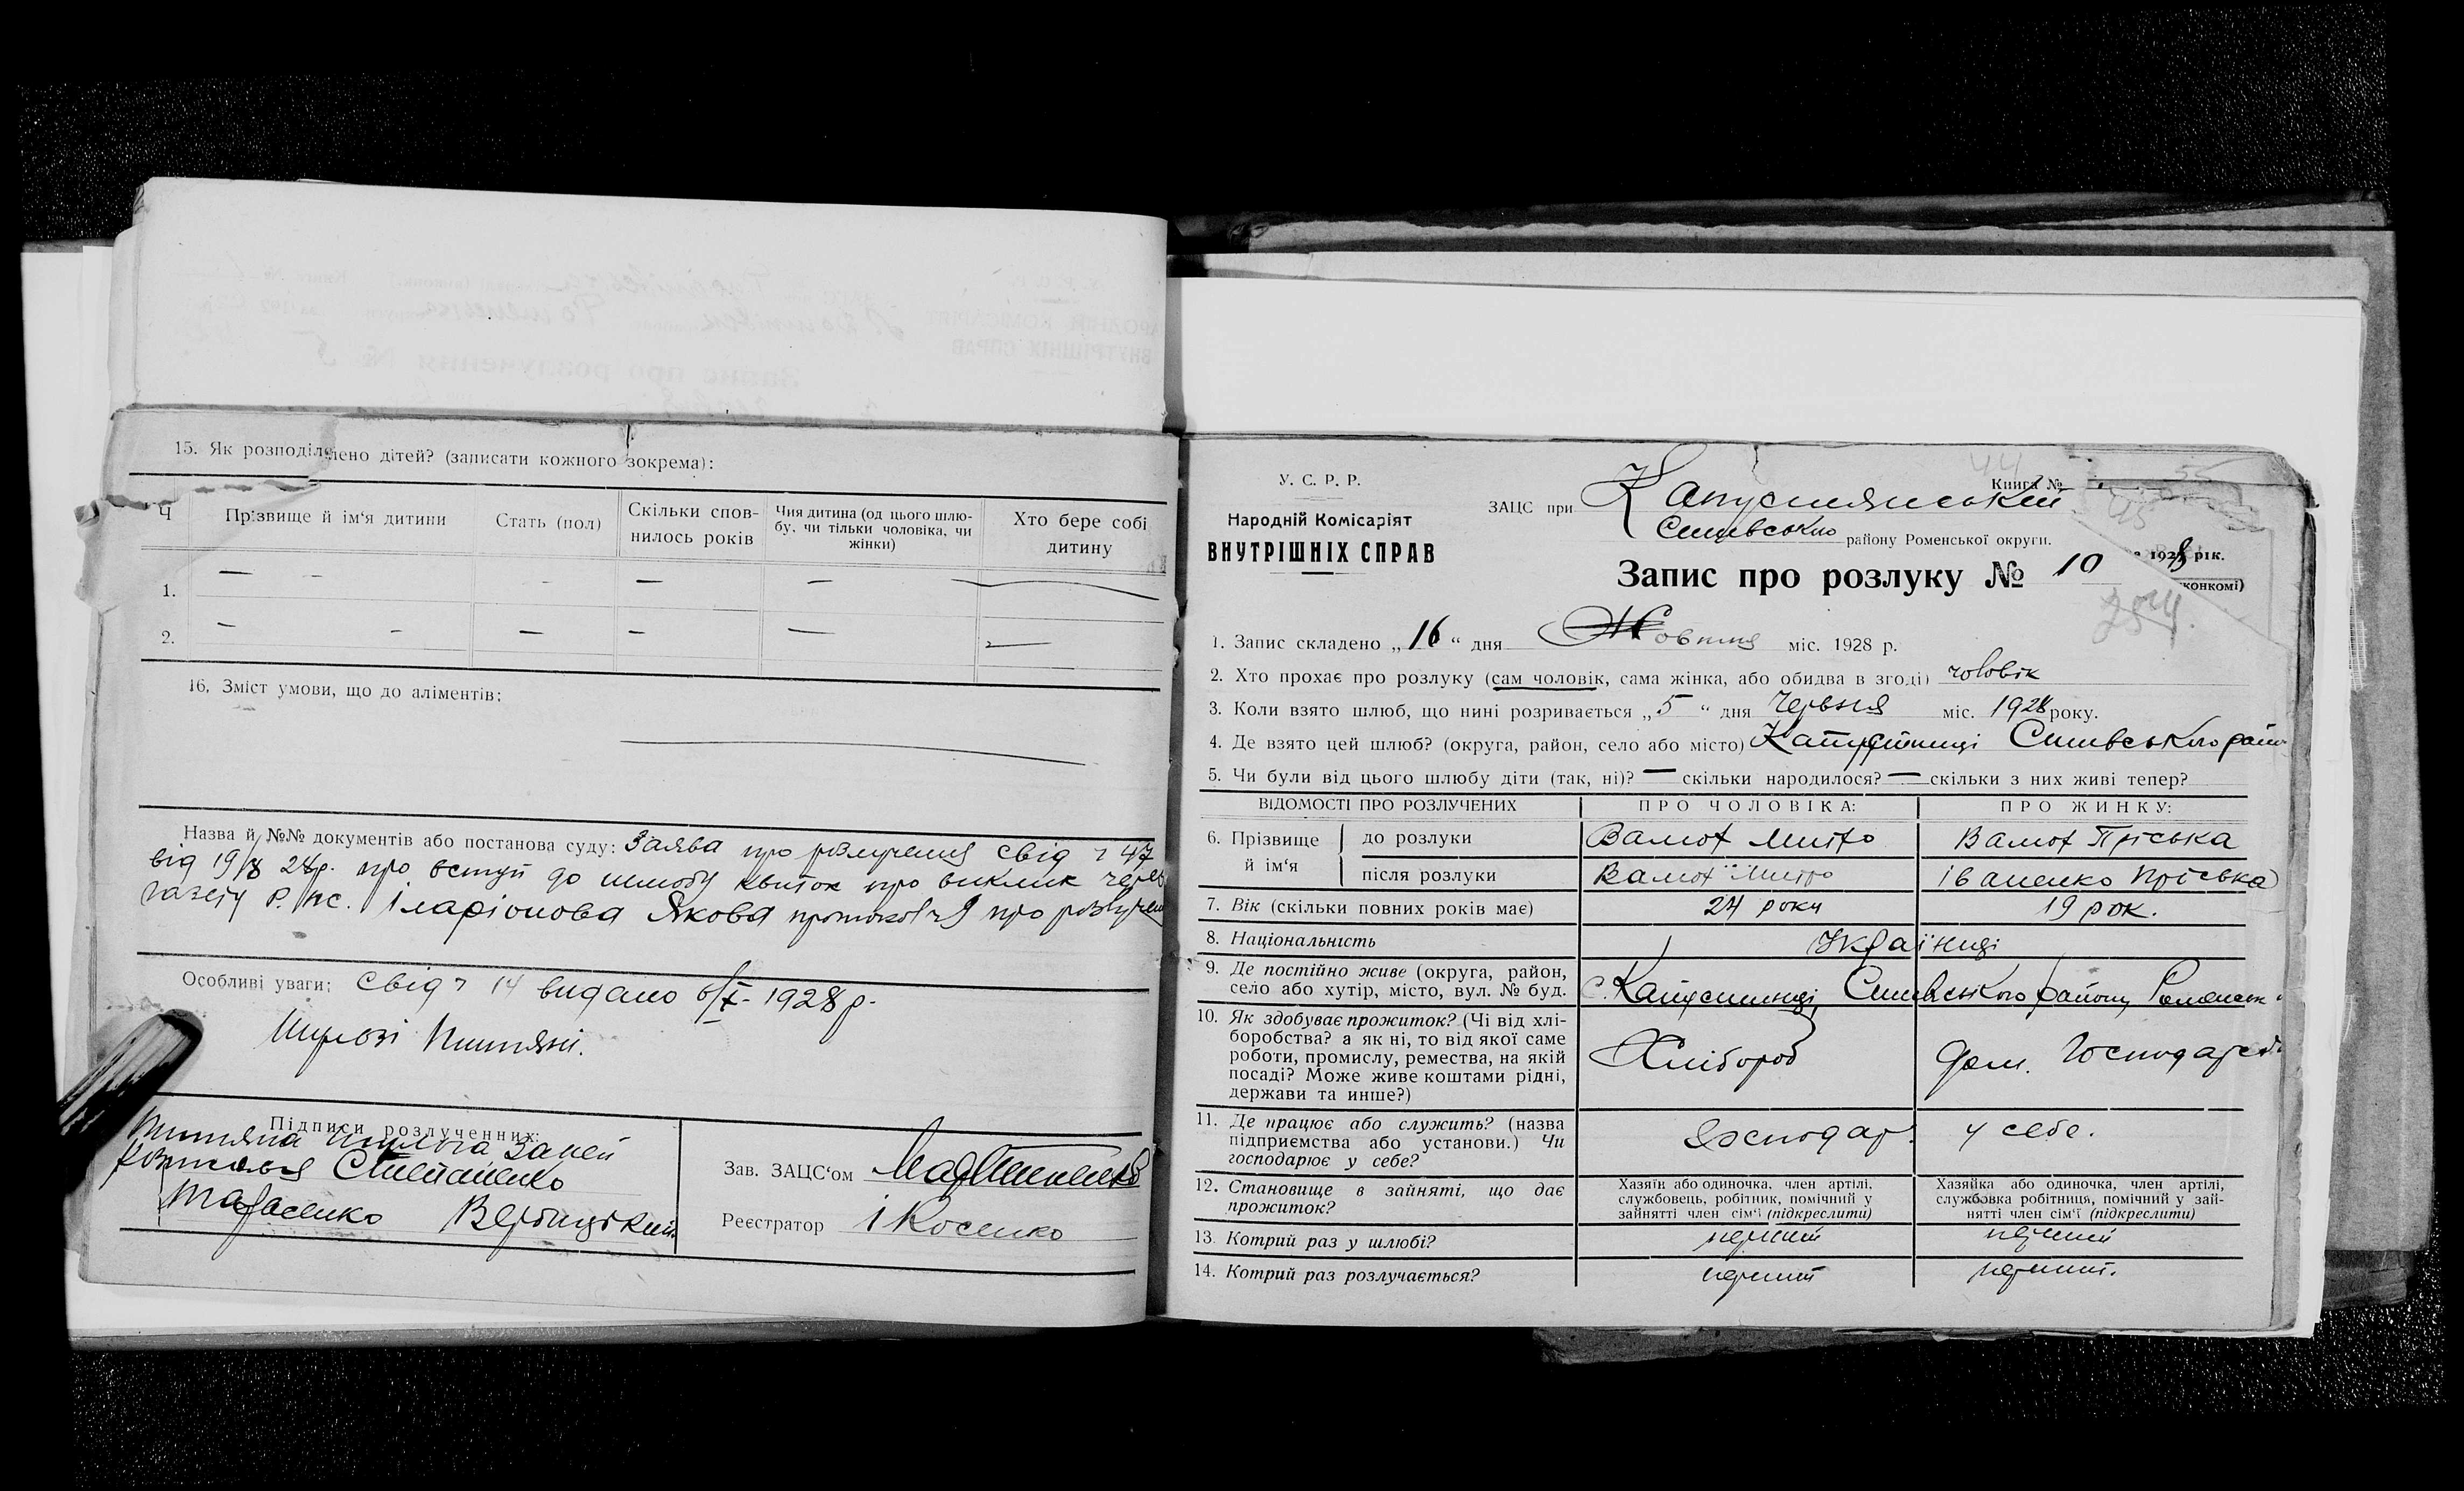 15. Як розподілено дітей? (записати кожного зокрема):
Ч
Прізвище й ім'я дитини
Стать (пол)
Скільки спов-
нилось років
Чия дитина (од цього шлю-
бу, чи тільки чоловіка, чи
жінки)
Хто бере собі
дитину
1. — — — — —
2. — — — — — —
16. Зміст умови, що до аліментів:
Назва й №№ документів або постанова суду: Заява про розлучення свід ч 47
від 19/ 28р. про вступ до шлюбу квиток про виклик через
газету Іларіонова Якова протокол ч 9 про розлучен
Особливі уваги: свід ч 14 видано 6/X- 1928 р.
Підписи розлученних:
за неї
Степаненко
Тарасенко Вербицький
Зав. ЗАЦС'ом
Реєстратор І Косенко
У. С. Р. Р.
Народній Комісаріят
ВНУТРІШНІХ СПРАВ
44
Книга №
55
45
ЗАЦС при Капустянській
району Роменської округи.
1928 рік.
Запис про розлуку № 10
конкомі)
1. Запис складено „16“ дня Жовтня міс. 1928 р.
2. Хто прохає про розлуку (сам чоловік, сама жінка, або обидва в згоді) чоловік
3. Коли взято шлюб, що нині розривається „5“ дня Червня міс. 1928 року.
4. Де взято цей шлюб? (округа, район, село або місто) Капустинці
5. Чи були від цього шлюбу діти (так, ні)? — скільки народилося? — скільки з них живі тепер?
ВІДОМОСТІ ПРО РОЗЛУЧЕНИХ
ПРО ЧОЛОВІКА:
ПРО ЖИНКУ:
6. Прізвище й ім'я
до розлуки Вамот Митро Вамот Пріська
після розлуки Вамот Митро Іваненко Пріська
7. Вік (скільки повних років має) 24 роки 19 рок.
8. Національність Українці
9. Де постійно живе (округа, район,
село або хутір, місто, вул. № буд. с. Капустинці, району, Роменськ
10. Як здобуває прожиток? (Чі від хлі-
боробства? а як ні, то від якої саме
роботи, промислу, ремества, на якій
посаді? Може живе коштами рідні,
держави та инше?)
Хлібороб
Дом. Господарств
11. Де працює або служить? (назва
підприємства або установи.) Чи
господарює у себе?
господар.
у себе.
12. Становище в зайняті, що дає
прожиток?
Хазяїн або одиночка, член артілі,
службовець, робітник, помічний у
зайнятті член сім'ї (підкреслити)
Хазяйка або одиночка, член артілі,
службовка робітниця, помічний у зай-
нятті член сім'ї (підкреслити)
13. Котрий раз у шлюбі? перший перший
14. Котрий раз розлучається? перший перший.